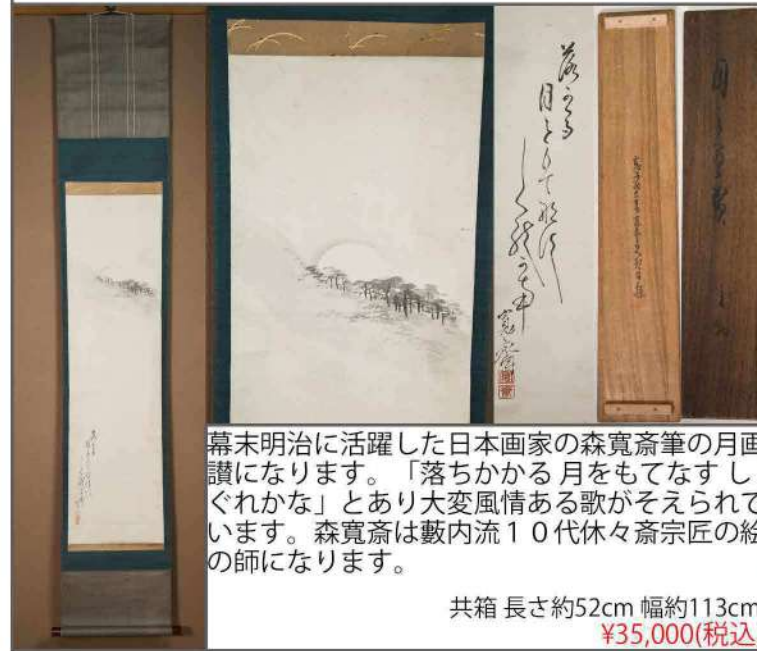 落かゝる
月をもてなす
しくれかな
寛斎
幕末明治に活躍した日本画家の森寛斎筆の月画
讃になります。「落ちかかる 月をもてなす し
ぐれかな」とあり大変風情ある歌がそえられて
います。森寛斎は藪内流１０代休々斎宗匠の絵
の師になります。
共箱 長さ約52cm 幅約113cm
¥35,000(税込